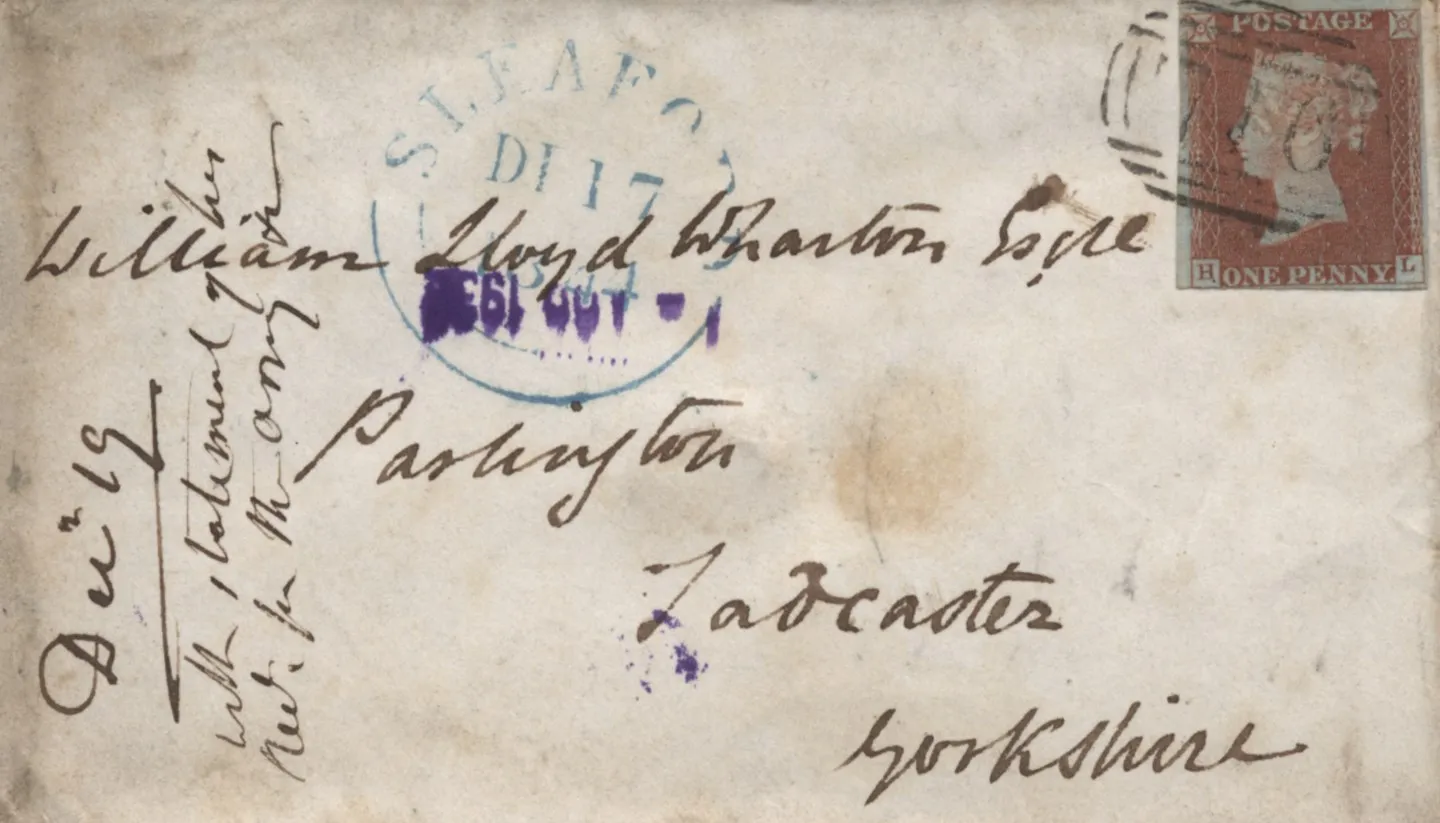 POSTAGE
ONE PENNY.
H L
SLEAFO
DI 17
William Lloyd Wharton Esqre
Parlington
Tadcaster
Yorkshire
Decr 19
with statement of her